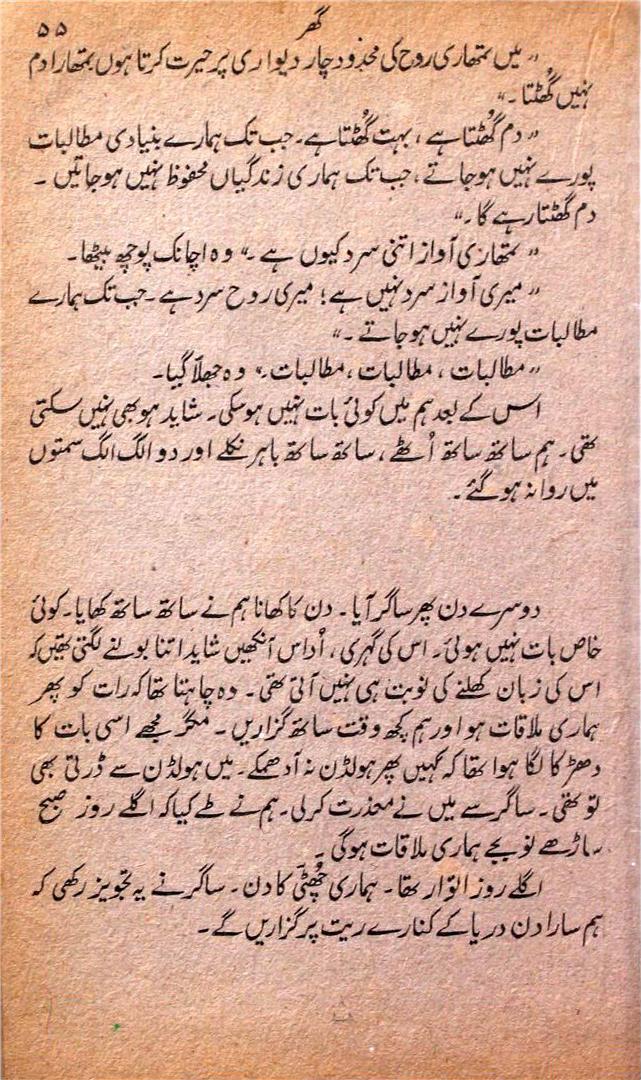 گھر ۵۵
” میں تمھاری روح کی محدود چار دیواری پر حیرت کرتا ہوں تمھارا دم
نہیں گھُٹتا ۔“
” دم گھُٹتا ہے ، بہت گھُٹتا ہے۔ جب تک ہمارے بنیادی مطالبات
پورے نہیں ہو جاتے ، جب تک ہماری زندگیاں محفوظ نہیں ہو جاتیں ۔
دم گھٹتا رہے گا ۔“
” تمھاری آواز اتنی سرد کیوں ہے ۔“ وہ اچانک پوچھ بیٹھا۔
” میری آواز سرد نہیں ہے؛ میری روح سرد ہے ۔ جب تک ہمارے
مطالبات پورے نہیں ہو جاتے ۔“
” مطالبات ، مطالبات ، مطالبات ۔“ وہ جھلّا گیا۔
اس کے بعد ہم میں کوئی بات نہیں ہو سکی۔ شاید ہو بھی نہیں سکتی
تھی۔ ہم ساتھ ساتھ اُٹھے ، ساتھ ساتھ باہر نکلے اور دو الگ الگ سمتوں
میں روانہ ہو گئے ۔
دوسرے دن پھر ساگر آیا ۔ دن کا کھانا ہم نے ساتھ ساتھ کھایا۔ کوئی
خاص بات نہیں ہوئی۔ اس کی گہری ، اُداس آنکھیں شاید اتنا بولنے لگتی تھیں کہ
اس کی زبان کھلنے کی نوبت ہی نہیں آتی تھی۔ وہ چاہتا تھا کہ رات کو پھر
ہماری ملاقات ہو اور ہم کچھ وقت ساتھ گزاریں ۔ مگر مجھے اسی بات کا
دھڑکا لگا ہوا تھا کہ کہیں پھر ہولڈن نہ آدھمکے۔ میں ہولڈن سے ڈرتی بھی
تو تھی ۔ ساگر سے میں نے معذرت کر لی۔ ہم نے طے کیا کہ اگلے روز صبح
ساڑھے نو بجے ہماری ملاقات ہوگی ۔
اگلے روز اتوار تھا۔ ہماری چھُٹّی کا دن ۔ ساگر نے یہ تجویز رکھی کہ
ہم سارا دن دریا کے کنارے ریت پر گزاریں گے ۔